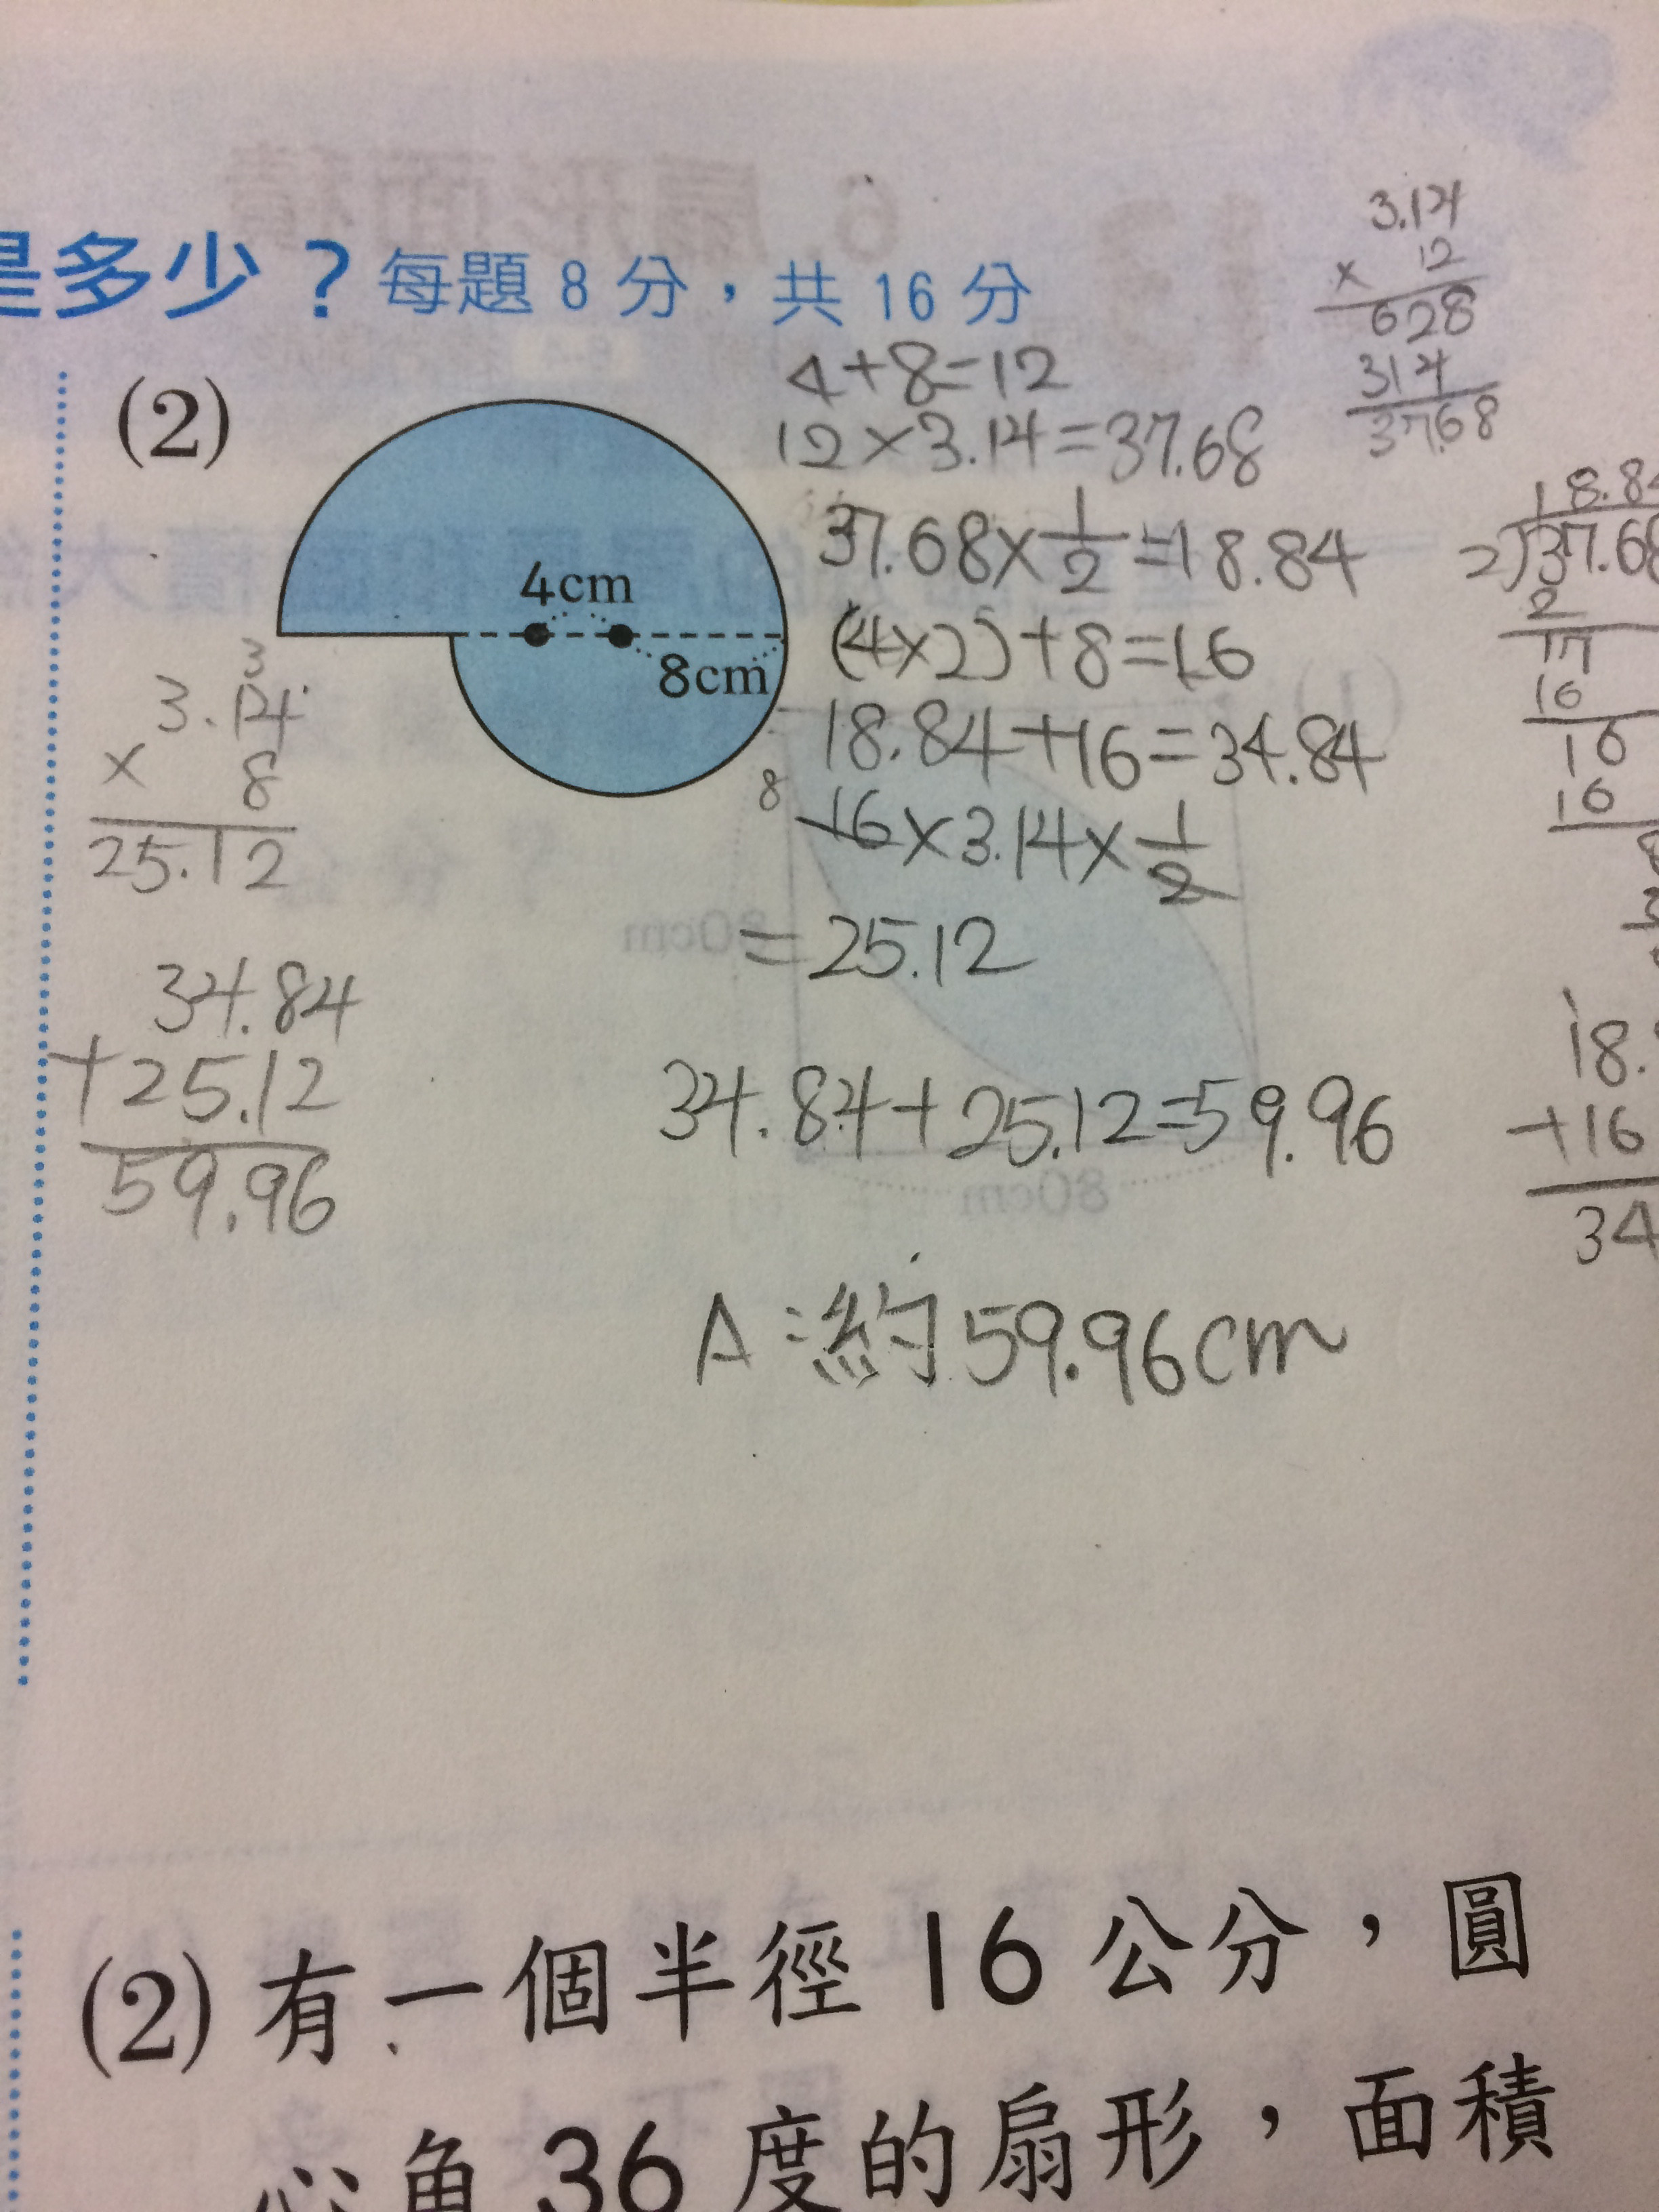 是多少？每題 8 分，共 16 分
(2)
4cm
8cm
4+8=12
12×3.14=37.68
37.68×1/2=18.84
(4×2)+8=16
18.84+16=34.84
8
16×3.14×1/2
=25.12
34.84+25.12=59.96
A:約59.96cm
3.14
× 12
628
314
37.68
18.84
2)37.68
2
17
16
16
16
18.
+16
34
3
3.14
× 8
25.12
34.84
+25.12
59.96
(2) 有一個半徑 16 公分，圓
心角 36 度的扇形，面積